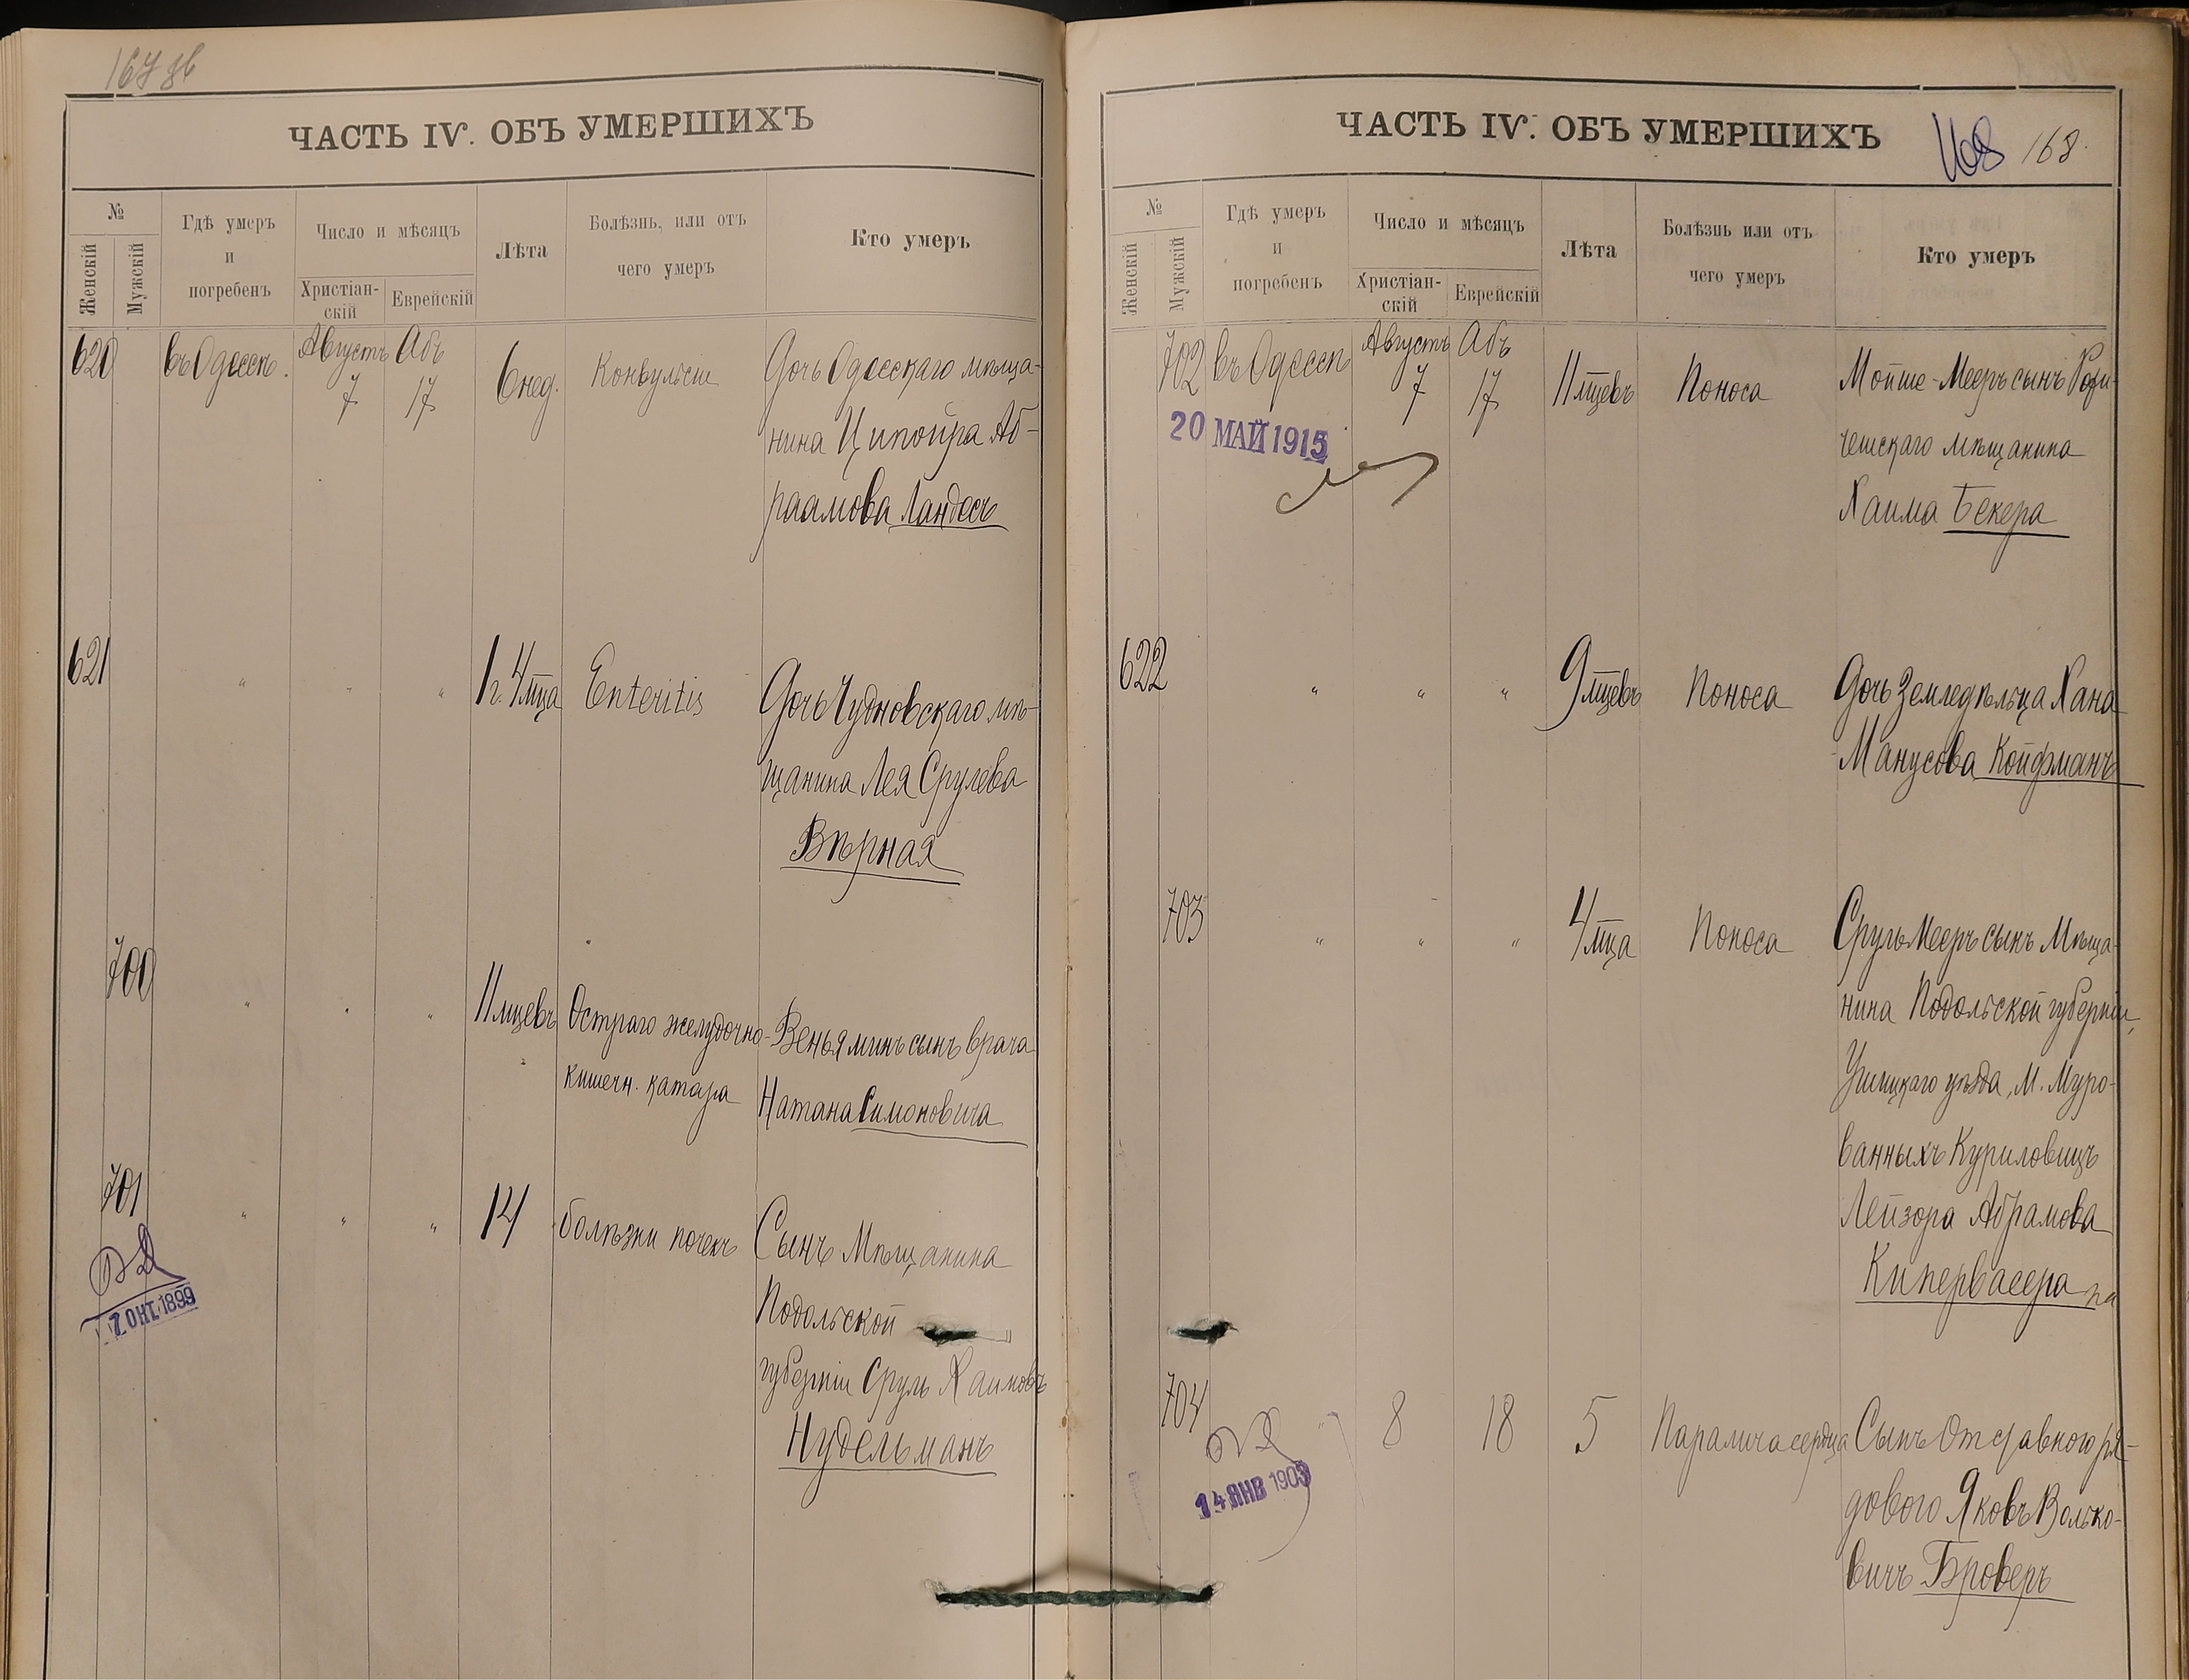 167 об
ЧАСТЬ IV. ОБЪ УМЕРШИХЪ
№
Женскій
Мужскій
Гдѣ умеръ
и
погребенъ
Число и мѣсяцъ
Христіан-
скій
Еврейскій
Лѣта
Болѣзнь, или отъ
чего умеръ
Кто умеръ
620
въ Одессѣ.
Августъ
7
Абъ
17
6 нед.
Конвульсіи
Дочь Одесскаго мѣща-
нина Ципойра Аб-
раамова Ландесъ
621
" " "
1 г. 4 мца
Enteritis
Дочь Чудновскаго мѣ-
щанина Лея Срулева
Вѣрная
700
" " "
11 мцевъ
Остраго желудочно-
кишечн. катара
Веньяминъ сынъ врача
Натана Симоновича
701
" " "
14
болѣзни почекъ
Сынъ Мѣщанина
Подольской
губерніи Сруль Хаимовъ
Нудельманъ
7 ОКТ. 1899
ЧАСТЬ IV. ОБЪ УМЕРШИХЪ
168 168.
№
Женскій
Мужскій
Гдѣ умеръ
и
погребенъ
Число и мѣсяцъ
Христіан-
скій
Еврейскій
Лѣта
Болѣзнь или отъ
чего умеръ
Кто умеръ
702
въ Одессѣ
Августъ
7
Абъ
17
11 мцевъ
Поноса
Мойше-Мееръ сынъ
мѣщанина
Хаима Бекера
20 МАЙ 1915
622
" " "
9 мцевъ
Поноса
Дочь Земледѣльца Хана
Манусова Койфманъ
703
" " "
4 мца
Поноса
Сруль Мееръ сынъ Мѣща-
нина Подольской губерніи,
Ушицкаго уѣзда, М. Муро-
ванныхъ Куриловицъ
Лейзора Абрамова
Кипервасера
704
"
8
18
5
Паралича сердца
Сынъ Отставного ря-
дового Яковъ Волько-
вичъ Броверъ
14 ЯНВ 1903